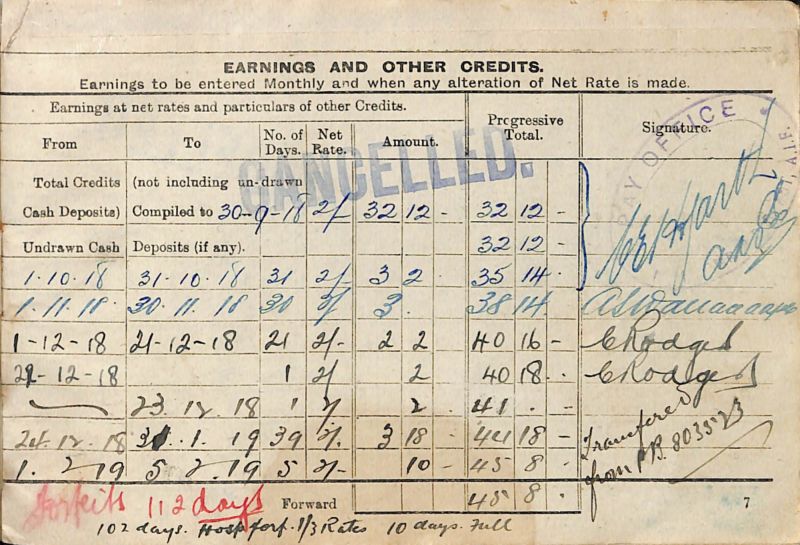 EARNINGS AND OTHER CREDITS.
Earnings to be entered Monthly and when any alteration of Net Rate is made.
Earnings at net rates and particulars of other Credits. Progressive Total. Signature.
From To No. of Days. Net Rate. Amount.
CANCELLED.
PAY OFFICE A.I.F.
Total Credits (not including un-drawn
Cash Deposits) Compiled to 30-9-18 2/ 32 12 - 32 12 -
Undrawn Cash Deposits (if any). 32 12 -
1.10.18 31.10.18 31 2/ 3 2 35 14 -
1.11.18 30.11.18 30 2/ 3 . 38 14
1-12-18 21-12-18 21 2/- 2 2 40 16 - C Rodges
22-12-18 1 2/ 2 40 18 . C Rodges
23.12.18 1 2/ 2 . 41 . -
24.12.18 31.1.19 39 2/. 3 18 - 44 18 -
1.2.19 5.2.19 5 2/- 10 - 45 8 -
Transfered from P.B. 803523
Forfeits 112 days Forward 45 8 . 7
102 days. Hosp forf. 1/3 Rates 10 days. Full